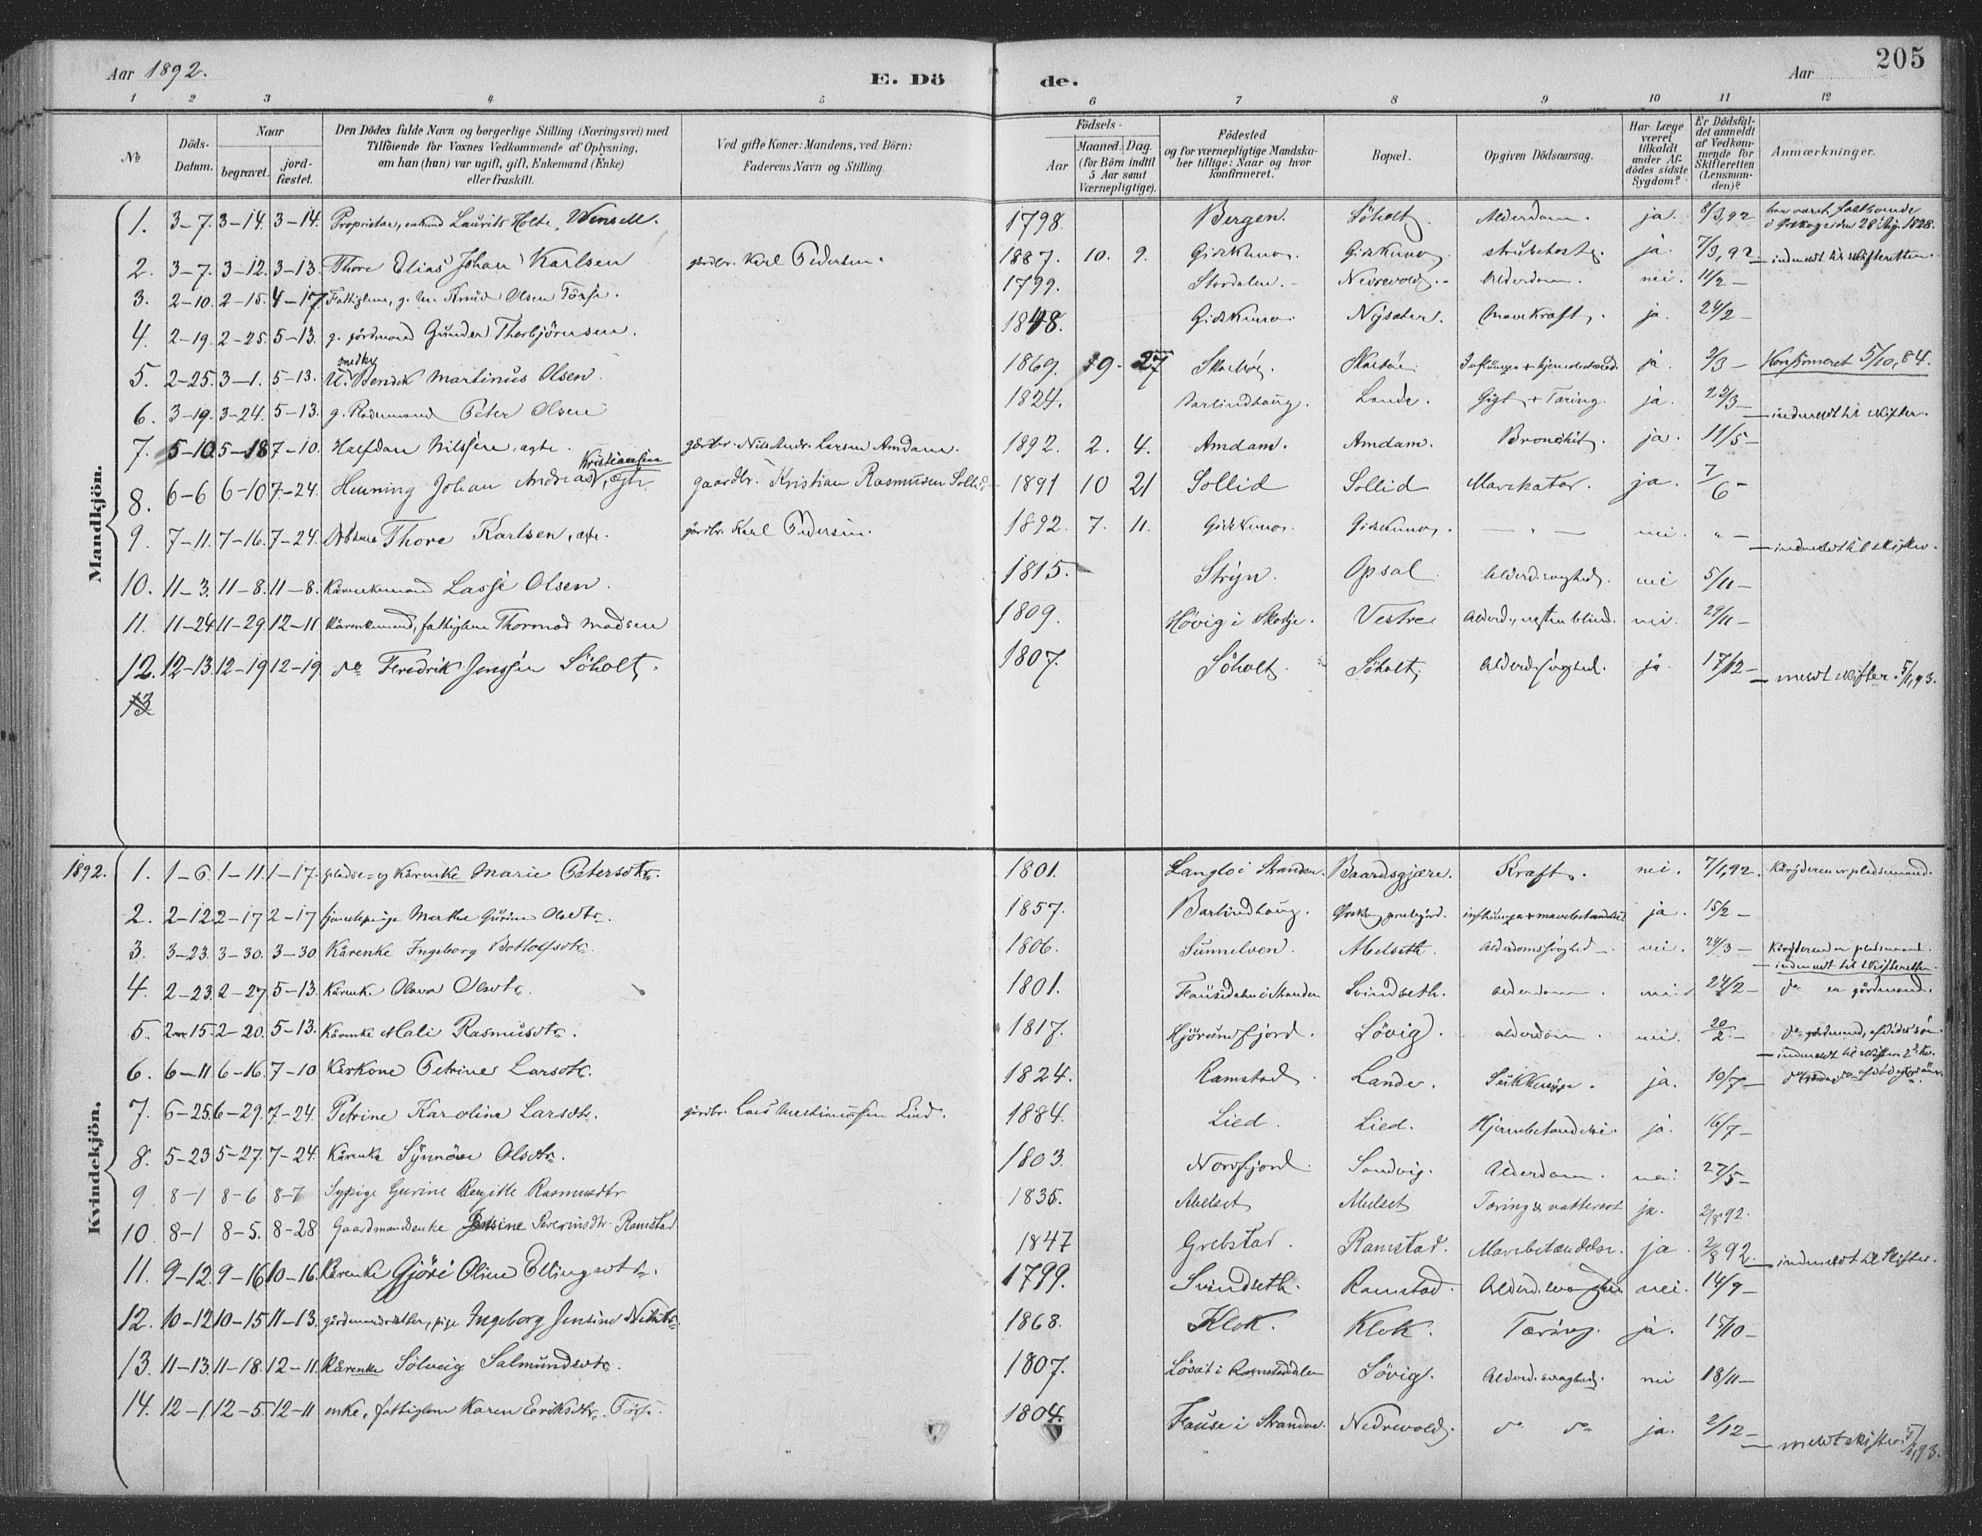 Aar 1892. E. Dö de. Aar 205
1 2 3 4 5 6 7 8 9 10 11 12
№ Döds-Datum. Naar begravet. jordfæstet. Den Dödes fulde Navn og borgerlige Stilling (Næringsvei) med Tilföiende for Voxnes Vedkommende af Oplysning, om han (hun) var ugift, gift, Enkemand (Enke) eller fraskilt. Ved gifte Koner: Mandens, ved Börn: Faderens Navn og Stilling. Födsels- Aar Maaned. Dag. (for Börn indtil 5 Aar samt Værnepligtige). Födested og for værnepligtige Mandskaber tillige: Naar og hvor konfirmeret. Bopæl. Opgiven Dödsaarsag. Har Læge været tilkaldt under Afdödes sidste Sygdom? Er Dödsfaldet anmeldt af Vedkommende for Skifteretten (Lensmanden)? Anmærkninger.
Mandkjön.
1. 3-7. 3-14. 3-14. Proprietær, enkemd Laurits Holte Wensell. 1798. Bergen. Söholt. Alderdom. ja. 8/3,92 har været fastboende i Ørskog siden 28 Aug. 1828.
2. 3-7. 3-12. 3-13. Thore Elias Johan Karlsen gårdbr. Karl Pedersen. 1887. 10. 9. Giskemo. Giskemo. strubehoste. ja. 7/3,92 – indmeldt til skifteretten.
3. 2-10. 2-15. 4-17 Fattiglem, g. m. Knud Olsen Törse. 1799. Stordalen. Nedrevold. Alderdom. nei. 11/2 –
4. 2-19. 2-25. 5-13. g. gårdmand Gunder Thorbjörnsen. 1848. Giskemo. Nysæter. Mavekræft. ja. 24/2 –
5. 2-25. 3-1. 5-13. U. smed Bendik Martinus Olsen. 1869. 9. 27 Skarbö. Skarbö. Influenza + hjernebetænd. ja. 3/3 – Konfirmeret 5/10,84.
6. 3-19. 3-24. 5-13. g. Peter Olsen 1824. Barlindhaug. Lande. Gigt + Tæring. ja. 23/3 – indmeldt til skifter.
7. 5-10 5-18 7-10. Halfdan Nilssen, ægte. gårdbr. Nils Andr. Larsen Amdam. 1892. 2. 4. Amdam. Amdam. Bronchit. ja. 11/5 –
8. 6-6 6-10 7-24. Henning Johan Andreas Kristiansen, ægte. gaardbr. Kristian Rasmusen Sollid 1891 10 21 Sollid Sollid Mavekatar. ja. 7/6 –
9. 7-11. 7-16. 7-24. Thore Karlsen, ægte. gårdbr. Karl Pedersen. 1892. 7. 11. Giskemo. Giskemo. – „ – nei. „ – – indmeldt til skifter.
10. 11-3. 11-8. 11-8. Kårenkemand Lasse Olsen. 1815. Stryn. Opsal. Alderd. svaghed. nei 5/11 –
11. 11-24 11-29 12-11 Kårenkemand, fattiglem Thormod Madsen 1809. Hövig i Skodje. Vestre Alderd., næsten blind. nei. 29/11 –
12. 12-13. 12-19 12-19. do Fredrik Jenssen Söholt. 1807. Söholt. Söholt. Alderdsvaghed. ja 17/12 – – meldt skifter. 5/1,93.
13
Kvindekjön.
1892. 1. 1-6. 1-11. 1-17. plads- og kårenke Marie Petersdtr. 1801. Langlo i Stranden. Baardsgjære. Kræft. nei. 7/1,92. Kårgiveren er pladsemand.
2. 2-12 2-17 2-17 tjenestepige Marthe Gurine Olsdtr. 1857. Barlindhaug. Ørskog prestegård. influenza + mavebetændelse ja. 15/2 –
3. 3-23. 3-30. 3-30 Kårenke Ingeborg Botholfsdtr. 1806. Sunnelven. Melseth. Alderdomssvaghed – nei. 24/3 – Kårgiveren er pladsemand. – indmeldt til skifteretten.
4. 2-23. 2-27. 5-13. Kårenke Olava Olsdtr. 1801. i Stranden Svindseth. alderdom nei. 24/2 – do en gårdmand.
5. 2-15. 2-20. 5-13. Kårenke Mali Rasmusdtr. 1817. Hjörundfjord. Sövig. alderdom nei. 20/2. – do gårdmand, afdödes sön. – indmeldt til skiften
6. 6-11 6-16. 7-10 Kårkone Petrine Larsdtr. 1824. Ramstad. Lande. ja. 10/7 –
7. 6-25. 6-29. 7-24. Petrine Karoline Larsdtr. gårdbr. Lars Martinussen Lied. 1884. Lied. Lied. Hjernebetændelse. ja. 16/7 –
8. 5-23 5-27. 7-24. Kårenke Synnöve Olsdtr. 1803. Nordfjord. Sandvig. Alderdom. nei. 27/5 –
9. 8-1 8-6 8-7 Sypige Gurine Bergitte Rasmusdtr 1835. Melset Melset Tæring & vattersot ja. 2/8 92.
10. 8-1 8-5. 8-28 Gaardmandsenke Petrine Severinsdtr. Ramstad 1847 Grebstad. Ramstad. Mavebetændelse. ja. 2/8 92. – indmeldt til Skifter.
11. 9-12. 9-16 10-16. Kårenke Gjöri Oline Ellingsdtr. 1799. Svindseth. Ramstad. Alderd. svaghed nei. 14/9 –
12. 10-12 10-15 11-13. gårdmandsdatter, pige Ingeborg Jensine Nilsdtr. 1868. Klok. Klok. Tæring. ja. 15/10 –
13. 11-13. 11-18. 12-11. Kårenke Sölveig Salmundsdtr. 1807. Löset i Ramstaddalen Sövig. Alderd. svaghed. nei 18/11 –
14. 12-1. 12-5. 12-11 enke, fattiglem Karen Eriksdtr. Törse. 1804. Fause i Stranden. Nedrevold. do do ja. 2/12 – – meldt skifter. 5/1,93.